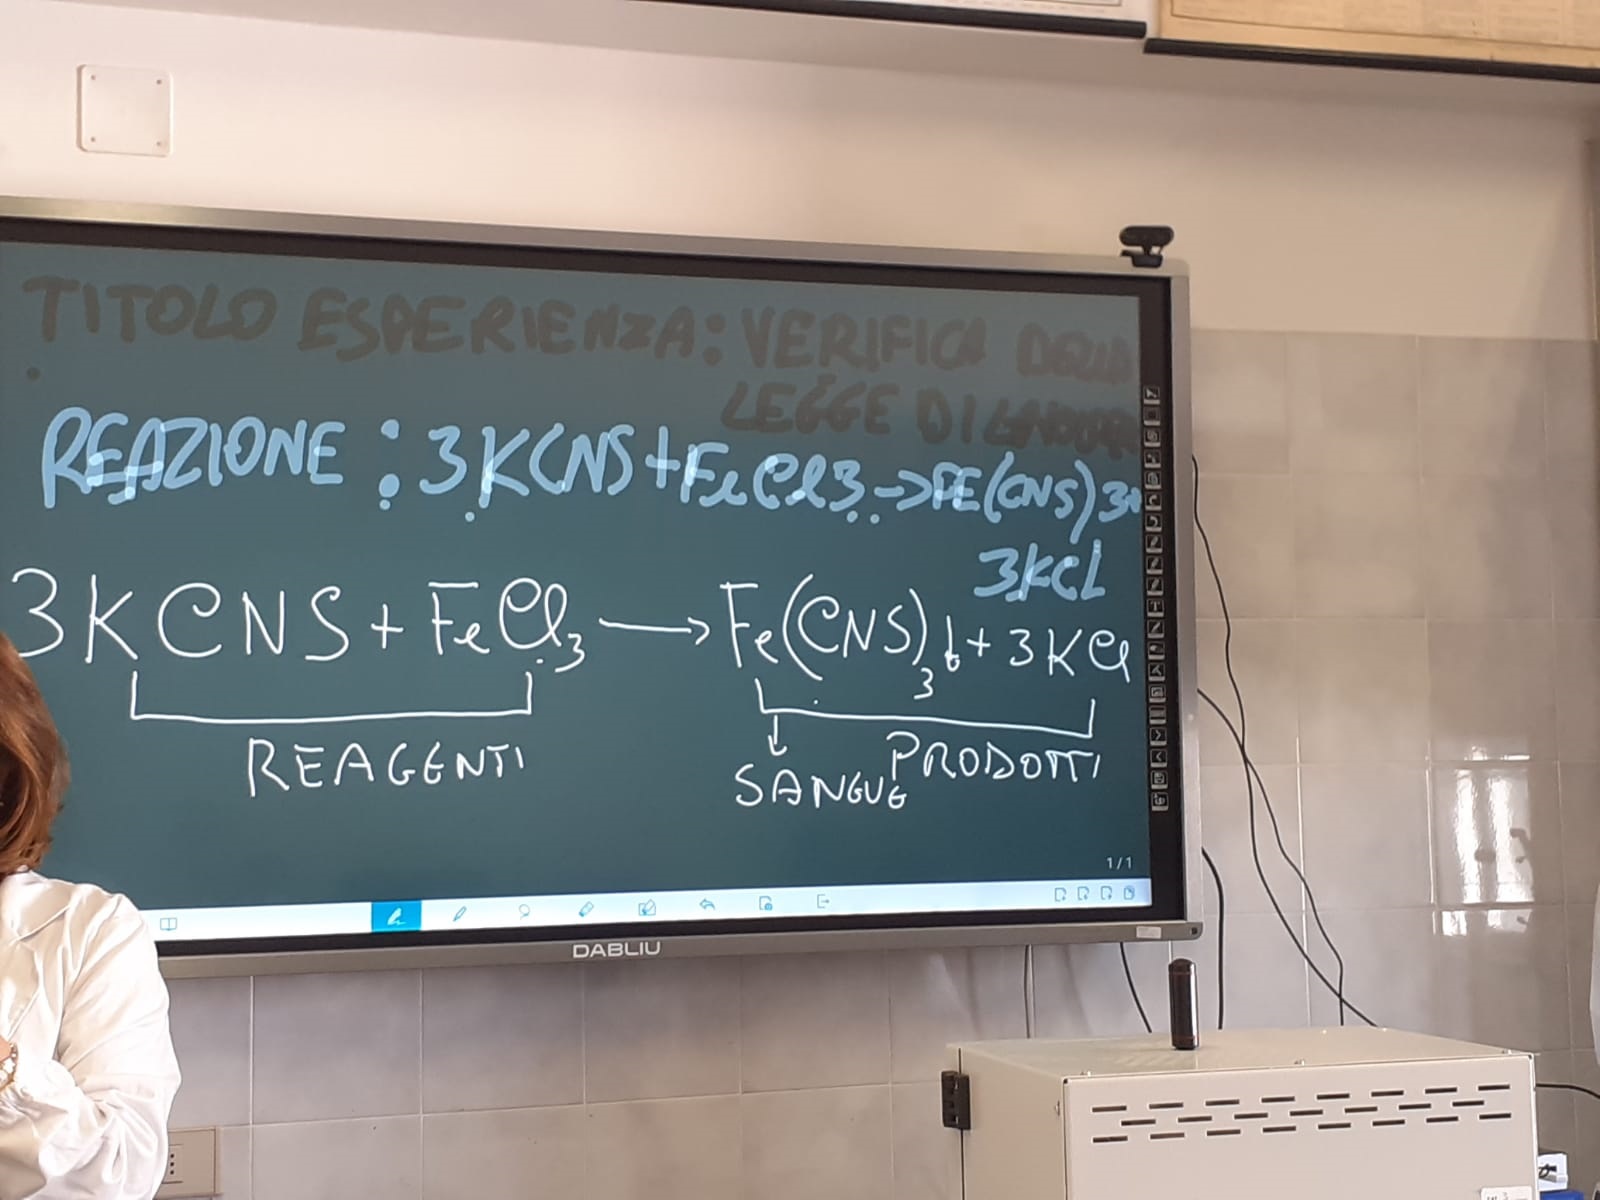 TITOLO ESPERIENZA: VERIFICA DELLA
LEGGE DI
REAZIONE : 3KCNS+FeCl3->FE(CNS)3+
3KCl
3KCNS + FeCl3 → Fe(CNS)3↓ + 3KCl
REAGENTI
PRODOTTI
SANGUE
1/1
DABLIU